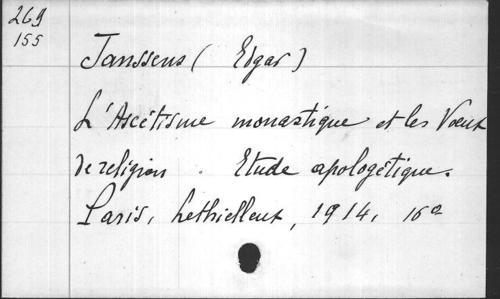 269
155
Janssens ( Edgar )
L'Ascétisme monastique et les Vœux
de religion . Etude apologétique.
Paris, Lethielleux, 1914, 16°